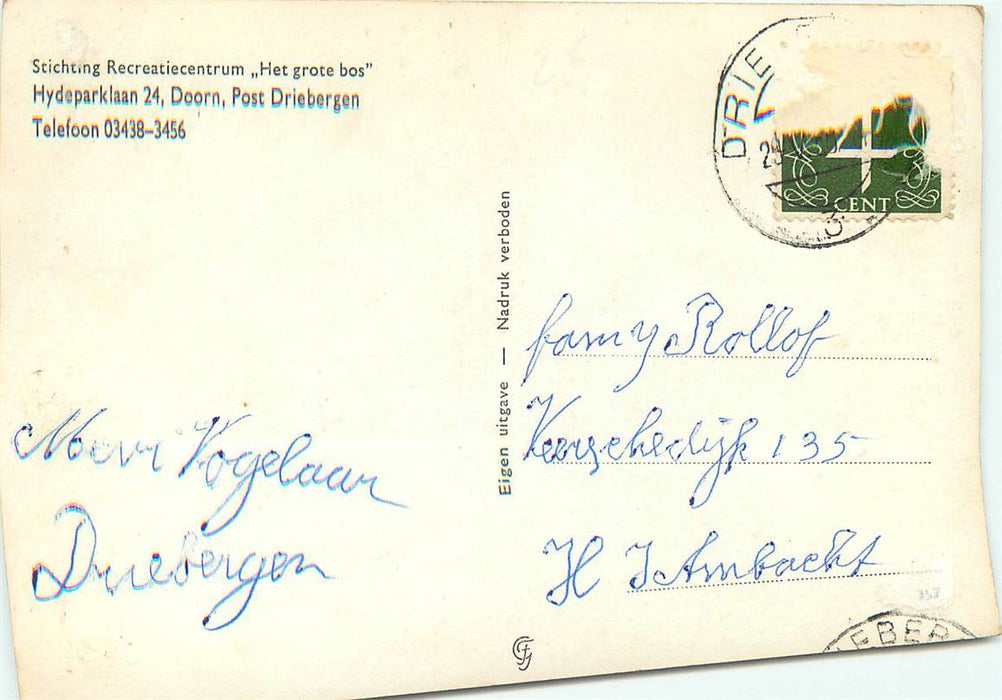 Stichting Recreatiecentrum „Het grote bos”
Hydeparklaan 24, Doorn, Post Driebergen
Telefoon 03438-3456
DRIE
4
CENT
Eigen uitgave — Nadruk verboden
famy Rollof
135
H I Ambacht
Mevr Vogelaar
Driebergen
IEBER
357